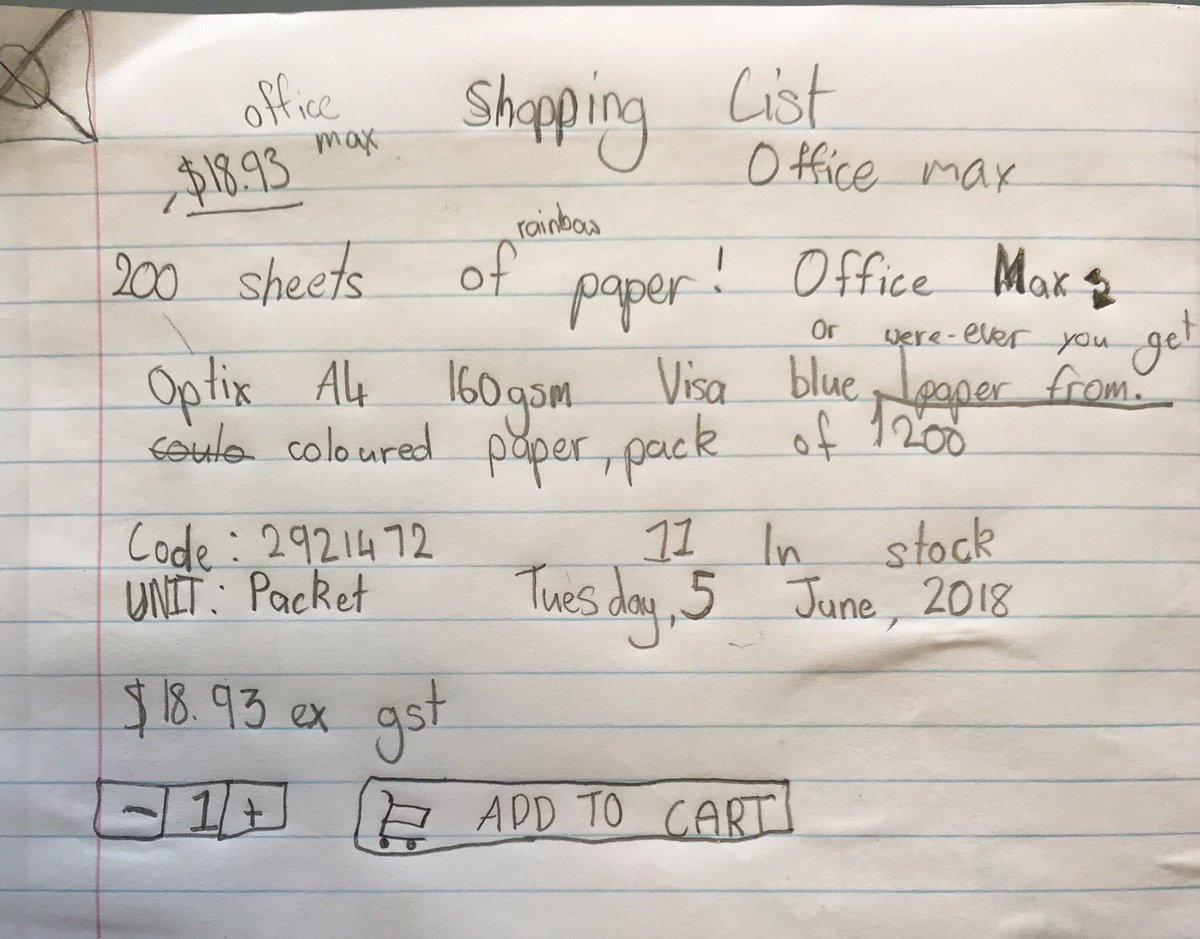 office Shopping List
max
$18.93 Office max
rainbow
200 sheets of paper! Office Max
or were-ever you get
Optix A4 160gsm Visa blue, paper from.
coulo coloured paper, pack of 200
Code: 2921472 11 In stock
UNIT: Packet Tuesday, 5 June, 2018
$18.93 ex gst
- 1 + ADD TO CART